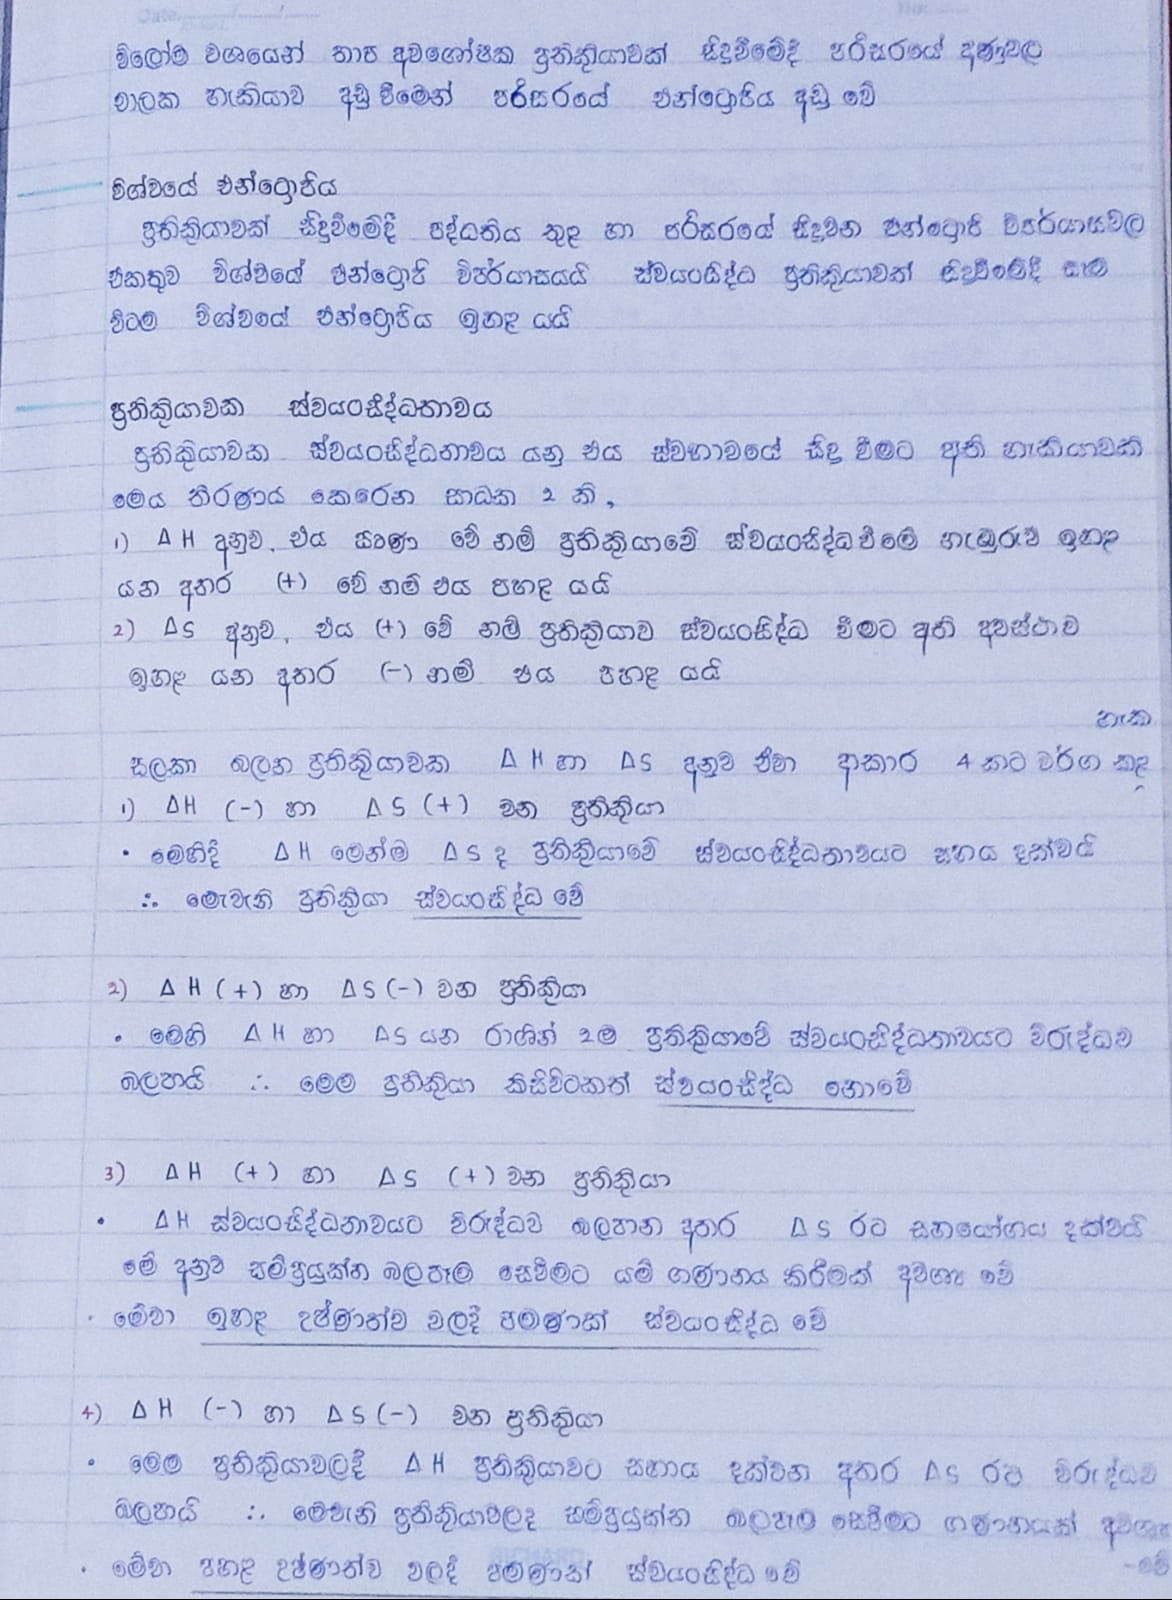 විලෝම වශයෙන් තාප අවශෝෂක ප්‍රතික්‍රියාවක් සිදුවීමේදී පරිසරයේ අණුවල
චාලක හැකියාව අඩු වීමෙන් පරිසරයේ එන්ට්‍රොපිය අඩු වේ
විශ්වයේ එන්ට්‍රොපිය
ප්‍රතික්‍රියාවක් සිදුවීමේදී පද්ධතිය තුළ හා පරිසරයේ සිදුවන එන්ට්‍රොපි විපර්යාසවල
එකතුව විශ්වයේ එන්ට්‍රොපි විපර්යාසයයි ස්වයංසිද්ධ ප්‍රතික්‍රියාවක් සිදුවීමේදී සෑම
විටම විශ්වයේ එන්ට්‍රොපිය ඉහළ යයි
ප්‍රතික්‍රියාවක ස්වයංසිද්ධතාවය
ප්‍රතික්‍රියාවක ස්වයංසිද්ධතාවය යනු එය ස්වභාවයේ සිදු වීමට ඇති හැකියාවකි
මෙය තීරණය කෙරෙන සාධක 2 කි,
1) ΔH අනුව, එය ඍණ වේ නම් ප්‍රතික්‍රියාවේ ස්වයංසිද්ධ වීමේ හැඹුරුව ඉහළ
යන අතර (+) වේ නම් එය පහළ යයි
2) ΔS අනුව, එය (+) වේ නම් ප්‍රතික්‍රියාව ස්වයංසිද්ධ වීමට ඇති අවස්ථාව
ඉහළ යන අතර (-) නම් එය පහළ යයි
හැක
සලකා බලන ප්‍රතික්‍රියාවක ΔH හා ΔS අනුව ඒවා ආකාර 4 කට වර්ග කළ
1) ΔH (-) හා ΔS (+) වන ප්‍රතික්‍රියා
• මෙහිදී ΔH මෙන්ම ΔS ද ප්‍රතික්‍රියාවේ ස්වයංසිද්ධතාවයට සහය දක්වයි
∴ මෙවැනි ප්‍රතික්‍රියා ස්වයංසිද්ධ වේ
2) ΔH (+) හා ΔS (-) වන ප්‍රතික්‍රියා
• මෙහි ΔH හා ΔS යන රාශීන් 2ම ප්‍රතික්‍රියාවේ ස්වයංසිද්ධතාවයට විරුද්ධව
බලපායි ∴ මෙම ප්‍රතික්‍රියා කිසිවිටකත් ස්වයංසිද්ධ නොවේ
3) ΔH (+) හා ΔS (+) වන ප්‍රතික්‍රියා
• ΔH ස්වයංසිද්ධතාවයට විරුද්ධව බලපාන අතර ΔS රට සහයෝගය දක්වයි
මේ අනුව සම්ප්‍රයුක්ත බලපෑම සෙවීමට යම් ගණනය කිරීමක් අවශ්‍ය වේ
• මේවා ඉහළ උෂ්ණත්ව වලදී පමණක් ස්වයංසිද්ධ වේ
4) ΔH (-) හා ΔS (-) වන ප්‍රතික්‍රියා
• මෙම ප්‍රතික්‍රියාවලදී ΔH ප්‍රතික්‍රියාවට සහාය දක්වන අතර ΔS රට විරුද්ධව
බලපායි ∴ මෙවැනි ප්‍රතික්‍රියාවලද සම්ප්‍රයුක්ත බලපෑම සෙවීමට ගණනයක් අවශ්‍ය
- වේ
• මේවා පහළ උෂ්ණත්ව වලදී පමණක් ස්වයංසිද්ධ වේ